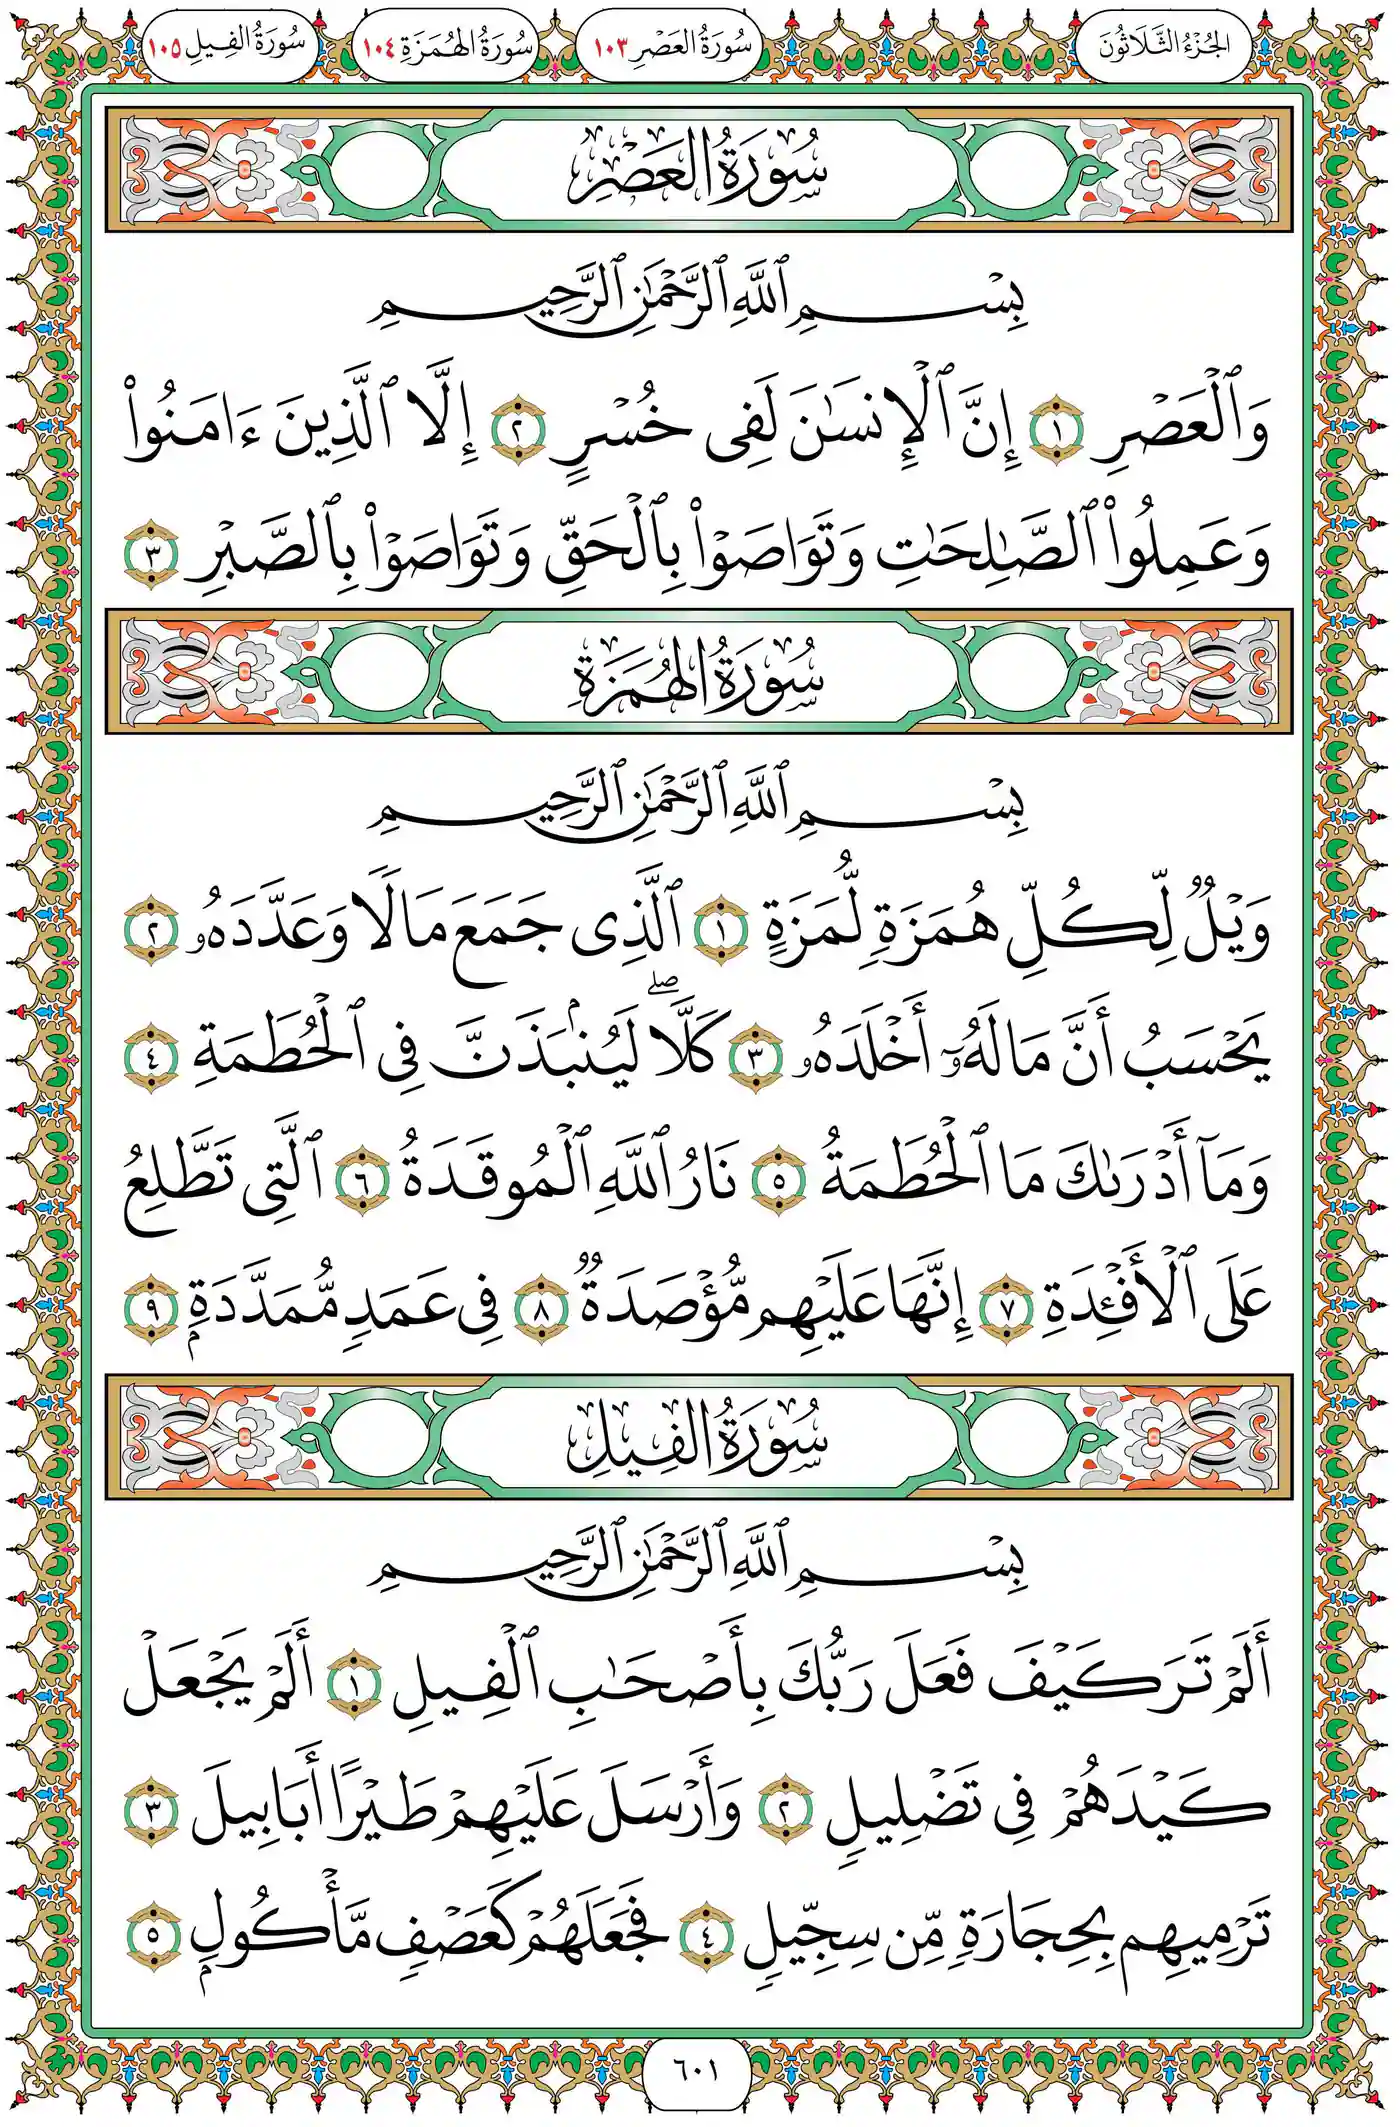 الجُزْءُ الثَّلَاثُونَ سُورَةُ العَصْرِ ١٠٣ سُورَةُ الهُمَزَةِ ١٠٤ سُورَةُ الفِيلِ ١٠٥
سُورَةُ العَصْرِ
بِسْمِ ٱللَّهِ ٱلرَّحْمَٰنِ ٱلرَّحِيمِ
وَٱلْعَصْرِ ١ إِنَّ ٱلْإِنسَٰنَ لَفِى خُسْرٍ ٢ إِلَّا ٱلَّذِينَ ءَامَنُوا۟
وَعَمِلُوا۟ ٱلصَّٰلِحَٰتِ وَتَوَاصَوْا۟ بِٱلْحَقِّ وَتَوَاصَوْا۟ بِٱلصَّبْرِ ٣
سُورَةُ الهُمَزَةِ
بِسْمِ ٱللَّهِ ٱلرَّحْمَٰنِ ٱلرَّحِيمِ
وَيْلٌ لِّكُلِّ هُمَزَةٍ لُّمَزَةٍ ١ ٱلَّذِى جَمَعَ مَالًا وَعَدَّدَهُۥ ٢
يَحْسَبُ أَنَّ مَالَهُۥٓ أَخْلَدَهُۥ ٣ كَلَّا ۖ لَيُنۢبَذَنَّ فِى ٱلْحُطَمَةِ ٤
وَمَآ أَدْرَىٰكَ مَا ٱلْحُطَمَةُ ٥ نَارُ ٱللَّهِ ٱلْمُوقَدَةُ ٦ ٱلَّتِى تَطَّلِعُ
عَلَى ٱلْأَفْـِٔدَةِ ٧ إِنَّهَا عَلَيْهِم مُّؤْصَدَةٌ ٨ فِى عَمَدٍ مُّمَدَّدَةٍۭ ٩
سُورَةُ الفِيلِ
بِسْمِ ٱللَّهِ ٱلرَّحْمَٰنِ ٱلرَّحِيمِ
أَلَمْ تَرَ كَيْفَ فَعَلَ رَبُّكَ بِأَصْحَٰبِ ٱلْفِيلِ ١ أَلَمْ يَجْعَلْ
كَيْدَهُمْ فِى تَضْلِيلٍ ٢ وَأَرْسَلَ عَلَيْهِمْ طَيْرًا أَبَابِيلَ ٣
تَرْمِيهِم بِحِجَارَةٍ مِّن سِجِّيلٍ ٤ فَجَعَلَهُمْ كَعَصْفٍ مَّأْكُولٍۭ ٥
٦٠١